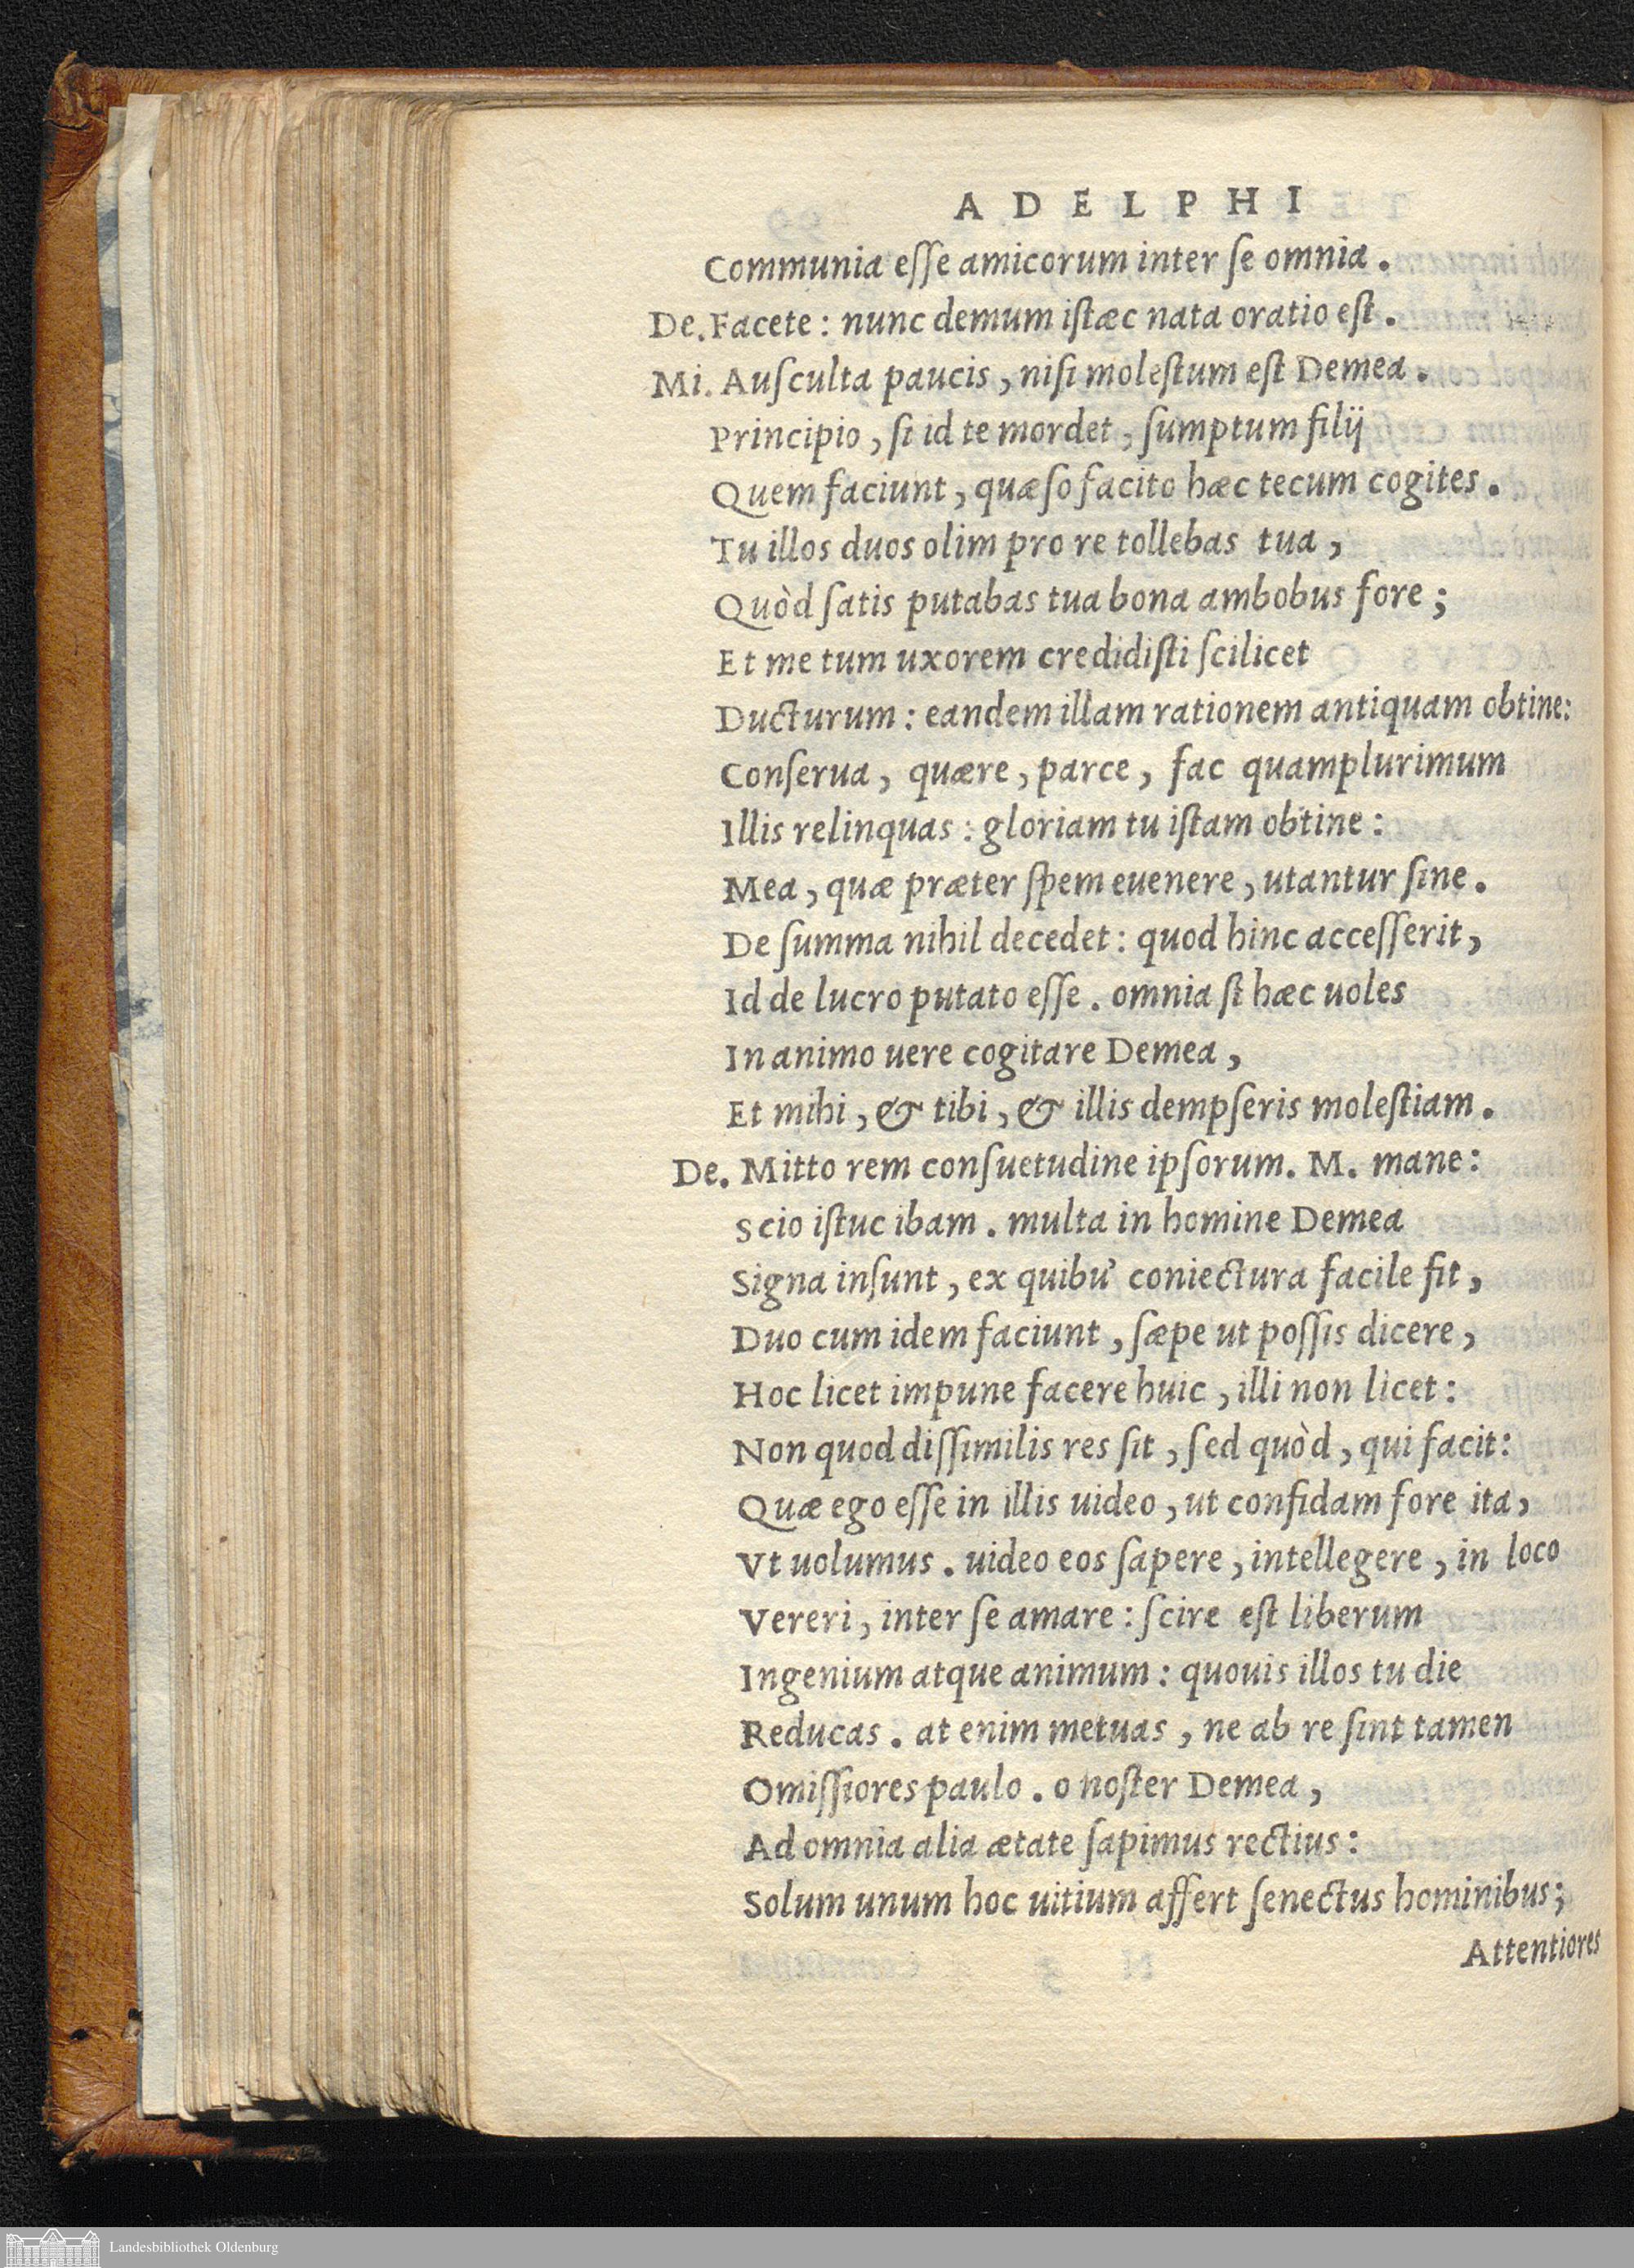 ADELPHI
Communia eſſe amicorum inter ſe omnia.
De. Facete: nunc demum iſtæc nata oratio eſt.
Mi. Auſculta paucis, niſi moleſtum eſt Demea.
Principio, ſi id te mordet, ſumptum filij
Quem faciunt, quæſo facito hæc tecum cogites.
Tu illos duos olim pro re tollebas tua,
Quòd ſatis putabas tua bona ambobus fore;
Et me tum uxorem credidiſti ſcilicet
Ducturum: eandem illam rationem antiquam obtine:
Conſerua, quære, parce, fac quamplurimum
Illis relinquas: gloriam tu iſtam obtine:
Mea, quæ præter ſpem euenere, utantur ſine.
De ſumma nihil decedet: quod hinc acceſſerit,
Id de lucro putato eſſe. omnia ſi hæc uoles
In animo uere cogitare Demea,
Et mihi, & tibi, & illis dempſeris moleſtiam.
De. Mitto rem conſuetudine ipſorum. M. mane:
Scio iſtuc ibam. multa in homine Demea
Signa inſunt, ex quibu' coniectura facile fit,
Duo cum idem faciunt, ſæpe ut poſſis dicere,
Hoc licet impune facere huic, illi non licet:
Non quod diſſimilis res ſit, ſed quòd, qui facit:
Quæ ego eſſe in illis uideo, ut confidam fore ita,
Vt uolumus. uideo eos ſapere, intellegere, in loco
Vereri, inter ſe amare: ſcire eſt liberum
Ingenium atque animum: quouis illos tu die
Reducas. at enim metuas, ne ab re ſint tamen
Omiſſiores paulo. o noſter Demea,
Ad omnia alia ætate ſapimus rectius:
Solum unum hoc uitium affert ſenectus hominibus;
Attentiores
Landesbibliothek Oldenburg